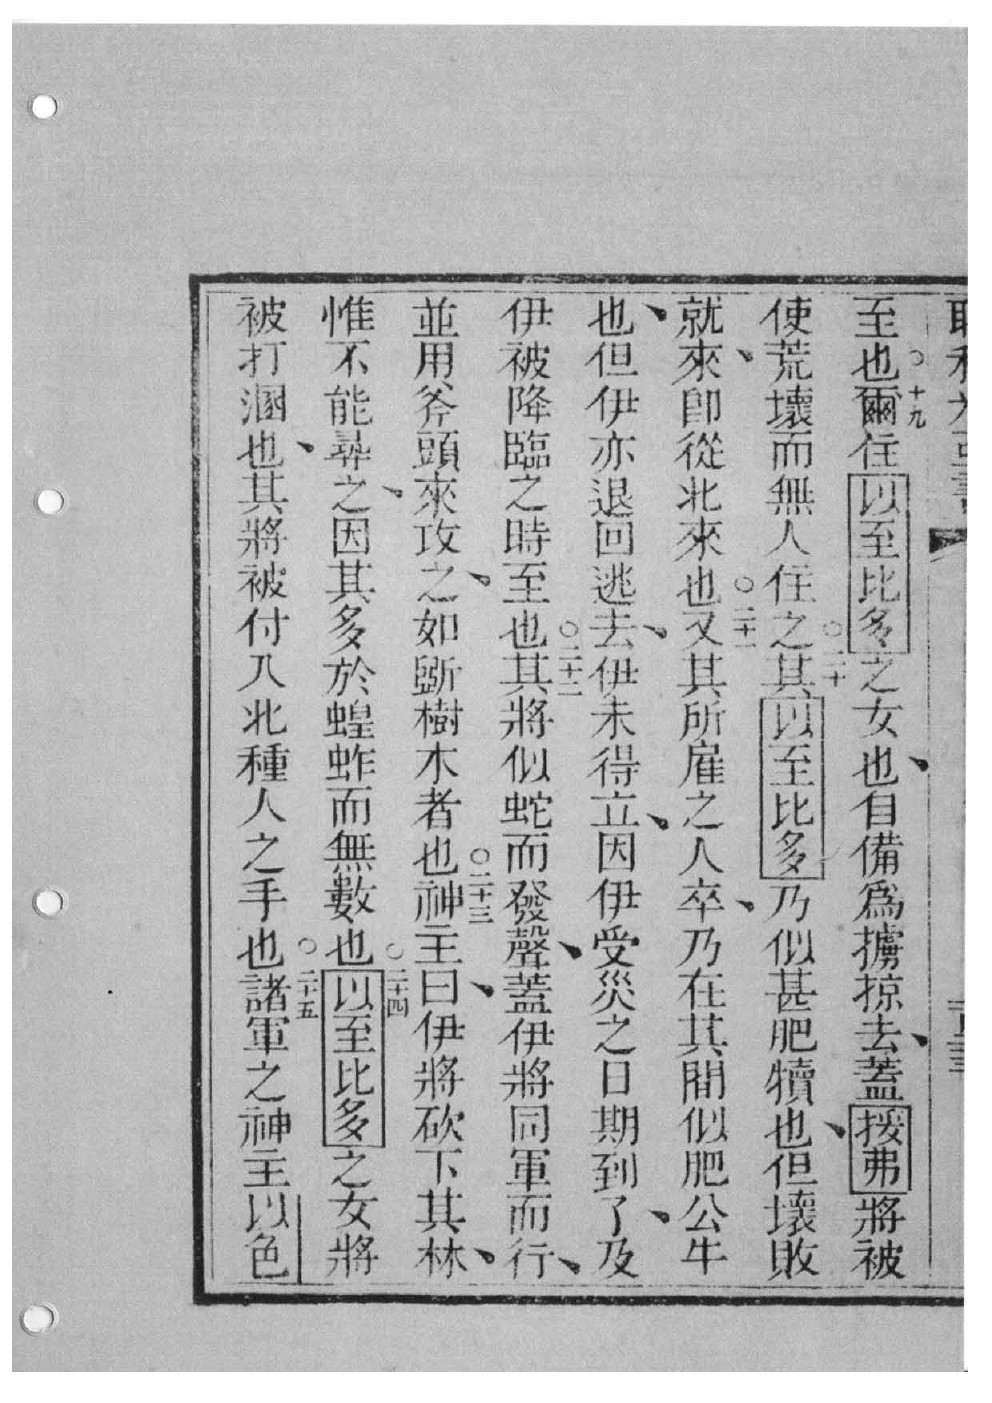 至也○十九爾住以至比多之女也自備爲擄掠去蓋援弗將被
使荒壞而無人住之○二十其以至比多乃似甚肥犢也但壞敗
就來卽從北來也○二十一又其所雇之人卒乃在其間似肥公牛
也但伊亦退回逃去伊未得立因伊受災之日期到了及
伊被降臨之時至也○二十二其將似蛇而發聲蓋伊將同軍而行
並用斧頭來攻之如斷樹木者也○二十三神主曰伊將砍下其林
惟不能尋之因其多於蝗蚱而無數也○二十四以至比多之女將
被打溷也其將被付入北種人之手也○二十五諸軍之神主以色